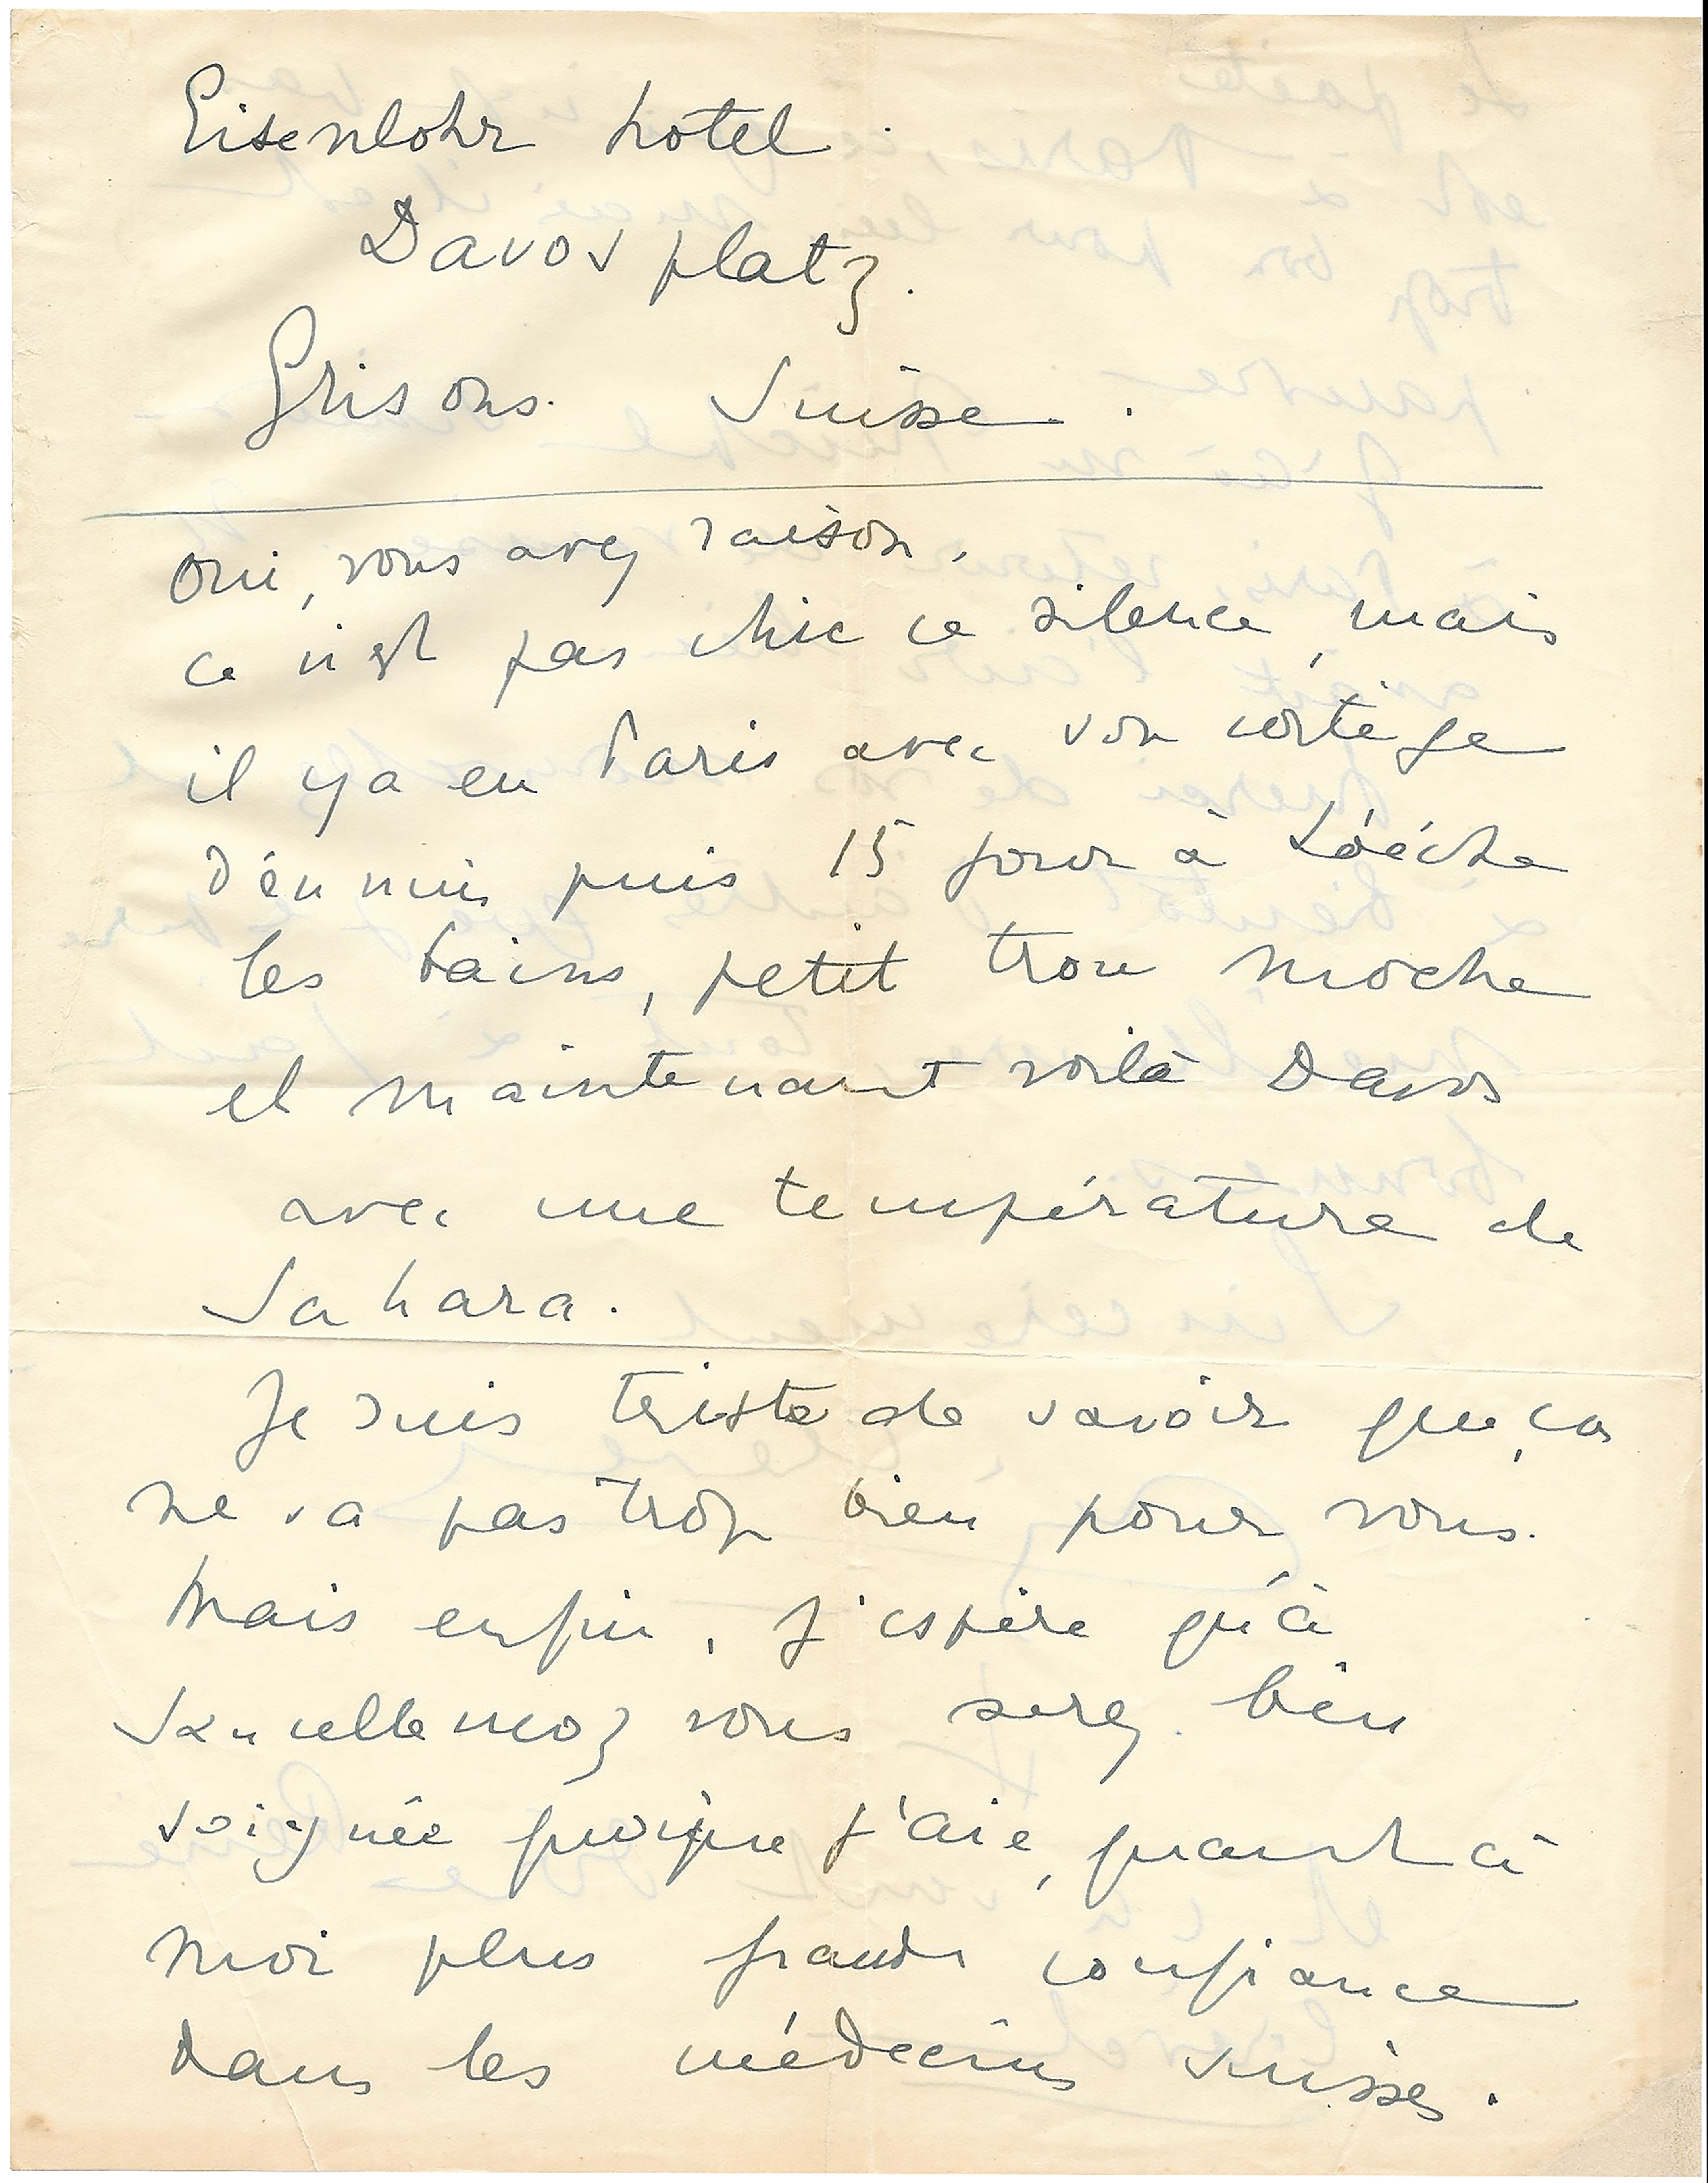 Eisenlohr hôtel
Davos platz.
Grisons. Suisse.
Oui, vous avez raison,
ce n'est pas chic ce silence, mais
il y a eu Paris avec son cortège
d'ennuis puis 15 jours à Loèche
les bains, petit trou moche
et maintenant voilà Davos
avec une température de
Sahara.
Je suis triste de savoir que ça
ne va pas trop bien pour vous.
Mais enfin, j'espère qu'à
Sancellemoz vous serez bien
soignée quoique j'aie, quant à
moi plus grande confiance
dans les médecins suisses.